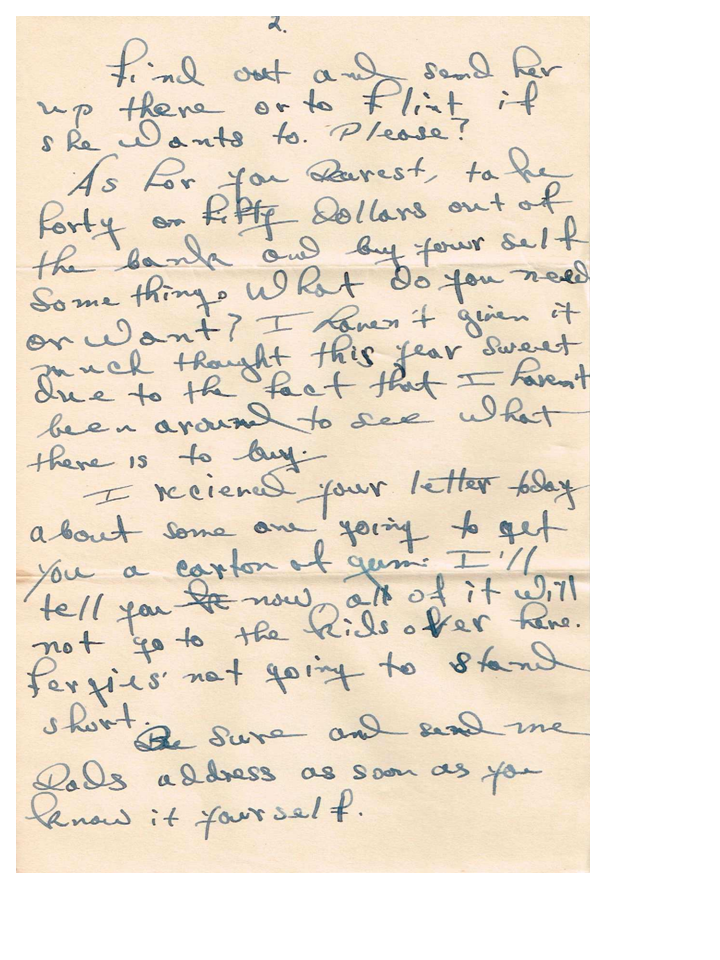 2.
Find out and send her
up there or to Flint if
she wants to. Please?
As for you Dearest, take
forty or fifty dollars out of
the bank and buy your self
something. What do you need
or want? I haven't given it
much thought this year sweet
due to the fact that I haven't
been around to see what
there is to buy.
I recieved your letter today
about some one going to get
you a carton of gum. I'll
tell you now, all of it will
not go to the kids over here.
Fergies' not going to stand
short.
Be sure and send me
Dads address as soon as you
know it yourself.